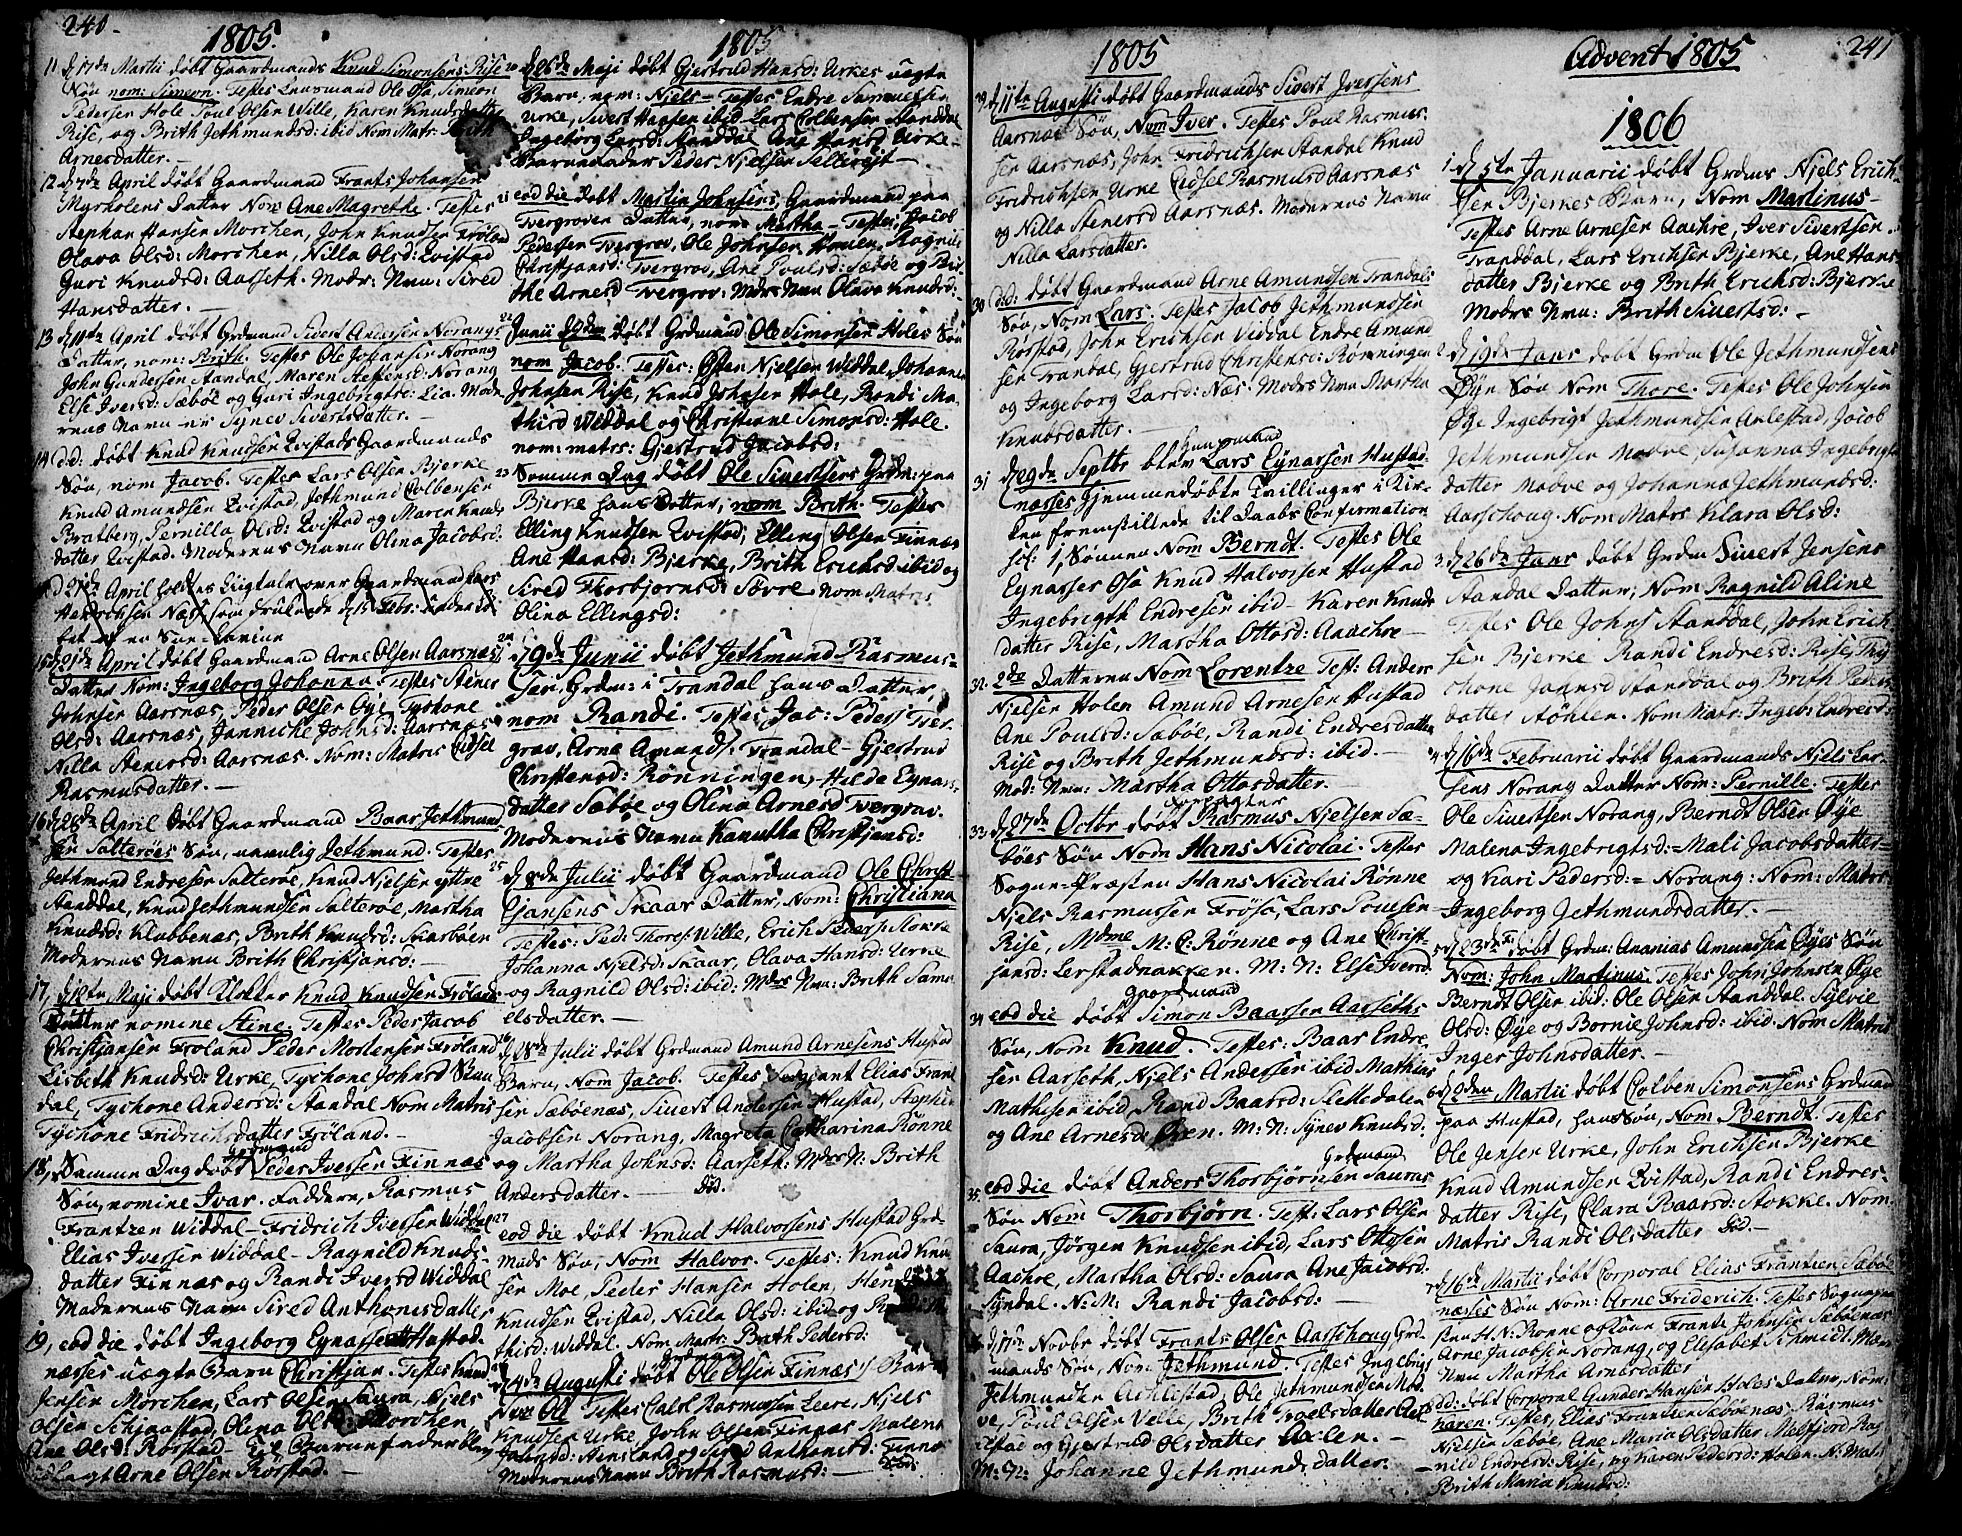 240.
1805.
11 d 17de Martii døbt Gaardmands Knud Simonsens Rise
Søn nom: Simeon. Testes Lensmand Ole Osa, Simeon
Petersen Hole Poul Olsen Wille, Karen Knudsdatter
Rise, og Brith Jethmundsd: ibid Nom Matr: Brith
Arnesdatter. —
12 d 7de April døbt Gaardmand Frants Johansen
Myrholens Datter Nom Ane Magrethe. Testes
Stephan Hansen Morchen, John Knudsen Frøland
Olava Olsd: Morchen, Nilla Olsd: Qvistad
Guri Knudsd: Aasseth. Modr: Nvn: Sired
Hansdatter. —
13 d 11te April døbt Grdmand Sivert Andersen Norangs
Datter, nom: Brith. Testes Ole Johansen Norang
John Gundersen Standal, Maren Steffensd: Norang
Else Iversd: Sæbøe og Guri Ingebrigtsd: Lia. Mode
rens Navn er Synev Sivertsdatter. —
14 d:d: døbt Knud Knudsen Qvistads Gaardmands
Søn, nom Jacob. Testes Lars Olsen Bjerke
Knud Amundsen Qvistad, Jethmund Colbensen
Bratberg, Pernilla Olsd: Qvistad og Maren Knuds
datter Qvistad. Moderens Navn Olina Jacobsd:
d 21de April holdtes Liigtale over Gaardmand Lars
Henrichsen Næss som druknede d 15 Febr:
15 d 21de April døbt Gaardmand Arne Olsen Aarsnæs
Datter Nom: Ingeborg Johanna. Testes Stener
Johnsen Aarsnæs, Peder Olsen Øye, Tychone
Olsd: Aarsnæs, Janniche Johnsd: Aarsnæs
Nilla Stenersd: Aarsnæs. Nom: Matris Eidsel
Rasmusdatter. —
16 d 26de April døbt Gaardmand Baar Jethmund
sen Salterøes Søn, navnlig Jethmund. Testes
Jethmund Endresen Salterøe, Knud Njelsen yttre
Standdal, Knud Jethmundsen Salterøe, Martha
Knudsd: Klubbenæs, Brith Knudsd: Skarbøen
Moderens Navn Brith Christjansd: —
17, d 12te Maji døbt Klokker Knud Knudsen Frølands
Datter nomine Stine. Testes Peder Jacob
Christjansen Frøland Peder Mortensen Frøland
Lisbeth Knudsd: Urke, Tychone Johnsd Stan
dal, Tychone Andersd: Standal Nom Matris
Tychone Fridrichsdatter Frøland. —
18, Samme Dag døbt Grdmand Peder Iversen Finnæs
Søn, nomine Ivar. Faddere, Rasmus
Frantzen Widdal — Fridrich Iversen Widdal
Elias Iversen Widdal — Ragnild Knuds-
datter Finnæs og Randi Iversd Widdal
Moderens Navn Sired Anthonisdatter
19, eod die døbt Ingeborg Eynarsd Hustad-
næsses uægte Barn Christjan. Testes Knud
Jensen Morchen, Lars Olsen Saura, Njels
Olsen Schjaastad, Olina Olsd: Morchen,
Ane Olsd: Rørstad — Til Barnefader blev
udlagt Arne Olsen Rørstad. —
1805
20 d 26de Maji døbt Gjertrud Hansd: Urkes uægte
Barn, nom: Njels — Testes Endre Samuelsen
Urke, Sivert Hansen ibid Lars Colbensen Standdal
Ingeborg Larsd: Standdal Ane Hansd Urke —
Barnefader Peder Njelsen Sellerejt —
21 eod die døbt Martin Johnsens, Gaardmand paa
Tvergroven Datter, nom Martha — Testes, Jacob
Pedersen Tvergrov, Ole Johnsen Hauen, Ragnild
Christjansd: Tvergrov, Ane Poulsd: Sæbøe og Bri-
the Arnesd Tvergrov: Mdrs Nvn Olava Knudsd:
22 Junii døbt Grdmand Ole Simonsen Holes Søn
nom Jacob. Testes: Østen Njelsen Widdal, Johannes
Johnsen Rise, Knud Johnsen Hole, Randi Ma-
thisd Widdal og Christiane Simonsd: Hole.
nom: matrs: Gjertrud Jacobsd:
23 Samme Dag døbt Ole Sivertsens Grdm: paa
Bjerke hans Datter, nom Brith. Testes
Elling Knudsen Qvistad, Elling Olsen Finnæs
Ane Hansd: Bjerke, Brith Erichsd ibid og
Sired Thorbjornsd: Søvre nom Matris
Olina Ellingsd:
24 d 9de Junii døbt Jethmund Rasmus-
sen, Grdm: i Trandal hans Datter
nom Randi. Testes, Jac: Peders Tver-
grav, Arne Amunds: Trandal — Gjertrud
Christensd: Rønningen, Hilde Eynars-
datter Sæbøe og Olina Arnesd Tvergrav.
Moderens Navn Kanutha Christjansd:
25 d 8de Julii døbt Gaardmand Ole Christ-
Ejansens Skaar Datter, Nom: Christiana
Testes: Ped: Thores: Wille, Erich Peders: Stokke
Johanna Njelsd: Skaar, Olava Hansd: Urke
og Ragnild Olsd: ibid: Mdrs Nvn: Brith Samu-
elsdatter. —
26 d 28de Julii døbt Grdmand Amund Arnesens Hustad
Barn, Nom Jacob. Testes Sergeant Elias Frant
sen Sæbøenæs, Sivert Andersen Hustad, Stephen
Jacobsen Norang, Magreta Catharina Rønne
og Martha Johnsd: Aarseth: Mdrs N: Brith
Andersdatter. — død.
27 eod die døbt Knud Halvorsens Hustad Grd-
mands Søn, Nom Halvor. Testes: Knud Knu
sen Moe, Peder Hansen Holen,
Knudsen Qvistad, Nilla Olsd: ibid og
thisd: Widdal. Nom Matr: Brith Pedersd:
28 d 4de Augusti døbt Grdmand Ole Olsen Finnæs's Barn
Nvn Ole Testes Carl Rasmussen Leere, Njels
Knudsen Urke, John Olsen Finnæs Malene
Johnsd: Hensland og Sired Anthonisd: Finnæs
Moderens Navn Brith Rasmusd: — død.
1805
29 d 11te Augusti døbt Gaardmands Sivert Iversens
Aarsnæs Søn, Nom Iver. Testes Poul Rasmus-
sen Aarsnæs, John Fridrichsen Standal Knud
Fridrichsen Urke Eidsel Rasmusd Aarsnæs
og Nilla Stenersd Aarsnæs. Moderens Navn
Nilla Larsdatter.
30 d:d: døbt Gaardmand Arne Amundsen Trandals
Søn, Nom Lars. Testes Jacob Jethmundsen
Rørstad, John Erichsen Viddal Endre Amund
sen Trandal, Gjertrud Christensd: Rønningen
og Ingeborg Larsd: Næs. Modrs Nvn Martha
Knudsdatter. —
31 d 29de Septbr blev Huusmand Lars Eynarsen Hustad-
næsses hjemmedøbte Tvillinger i Kir-
ken fremstillede til Daabs Confirmation
scl: 1, Sønnen Nom Berndt. Testes Ole
Eynarsen Osa Knud Halvorsen Hustad
Ingebrigth Endresen ibid — Karen Knuds
datter Rise, Martha Ottosd: Aachre —
32. 2de Datteren Nom Lorentze Test: Anders
Njelsen Holen Amund Arnesen Hustad
Ane Poulsd: Sæbøe, Randi Endresdatter
Rise og Brith Jethmundsd: ibid. —
Mod: Nvn: Martha Ottosdatter. —
33. d 27de Octbr døbt Rasmus Njelsen Sæ-
bøes Søn Nom Hans Nicolai. Testes
Sogne-Præsten Hans Nicolai Rønne
Njels Rasmussen Frøsa, Lars Povelsen
Rise, Mdme M: C: Rønne og Ane Christ-
jansd: Lerstadnakken. M: N: Else Iversd:
34 eod die døbt Gaardmand Simon Baarsen Aarseths
Søn, Nom Knud. Testes: Baar Endre-
sen Aarseth, Njels Andersen ibid Mathias
Mathisen ibid, Rand Baarsd: Slettedalen
og Ane Arnesd: Øren. M: N: Synev Knudsd:
35. eod die døbt Anders Thorbjørnsen Grdmand Sauras
Søn Nom Thorbjørn. Test: Lars Olsen
Saura, Jörgen Knudsen ibid, Lars Ottosen
Aachre, Martha Olsd: Saura Ane Jacobsd:
Syndal. N: M: Randi Jacobsd: —
d 17de Novbr døbt Frants Olsen Aarschoug Grd-
mands Søn, Nom Jethmund. Testes Ingebrigt
Jethmundsen Aahlestad, Ole Jethmundsen Mad-
ve, Poul Olsen Velle, Brith Troelsdatter
og Gjertrud Olsdatter Aalen. —
M: N: Johanne Jethmundsdatter.
241
Advent 1805
1806
1 d 5te Januarii døbt Grdms Njels Erich-
sen Bjerkes Barn, Nom Martinus —
Testes Arne Arnesen Aachre, Iver Sivertsen
Trandal, Lars Erichsen Bjerke, Ane Hans-
datter Bjerke og Brith Erichsd: Bjerke
Modrs Nvn: Brith Sivertsd: —
2. d 19de Jans døbt Grdm Ole Jethmundsens
Øyn Søn Nom Thore. Testes Ole Johnsen
Øye Ingebrigt Jethmundsen Aalestad, Jacob
Jethmundsen Madve, Susanna Ingebrigts
datter Madve og Johanna Jethmundsd:
Aarschoug. Nom Matrs Klara Olsd:
3. d 26de Jans døbt Grdm Sivert Jensens
Standal Datter, Nom Ragnild Aline
Testes Ole Johns Standdal, John Erich
sen Bjerke Randi Endresd: Rise, Thy
chone Johnsd Standal og Brith Peders
datter Støhlen. Nom Matr: Ingeb: Endresd:
4 d 16de Februarii døbt Gaardmands Njels Lar-
sens Norang Datter Nom: Pernille. Testes
Ole Sivertsen Norang, Berndt Olsen Øye
Malena Ingebrigtsd: — Mali Jacobsdatter —
og Kari Pedersd: = Norang: Nom: Matrs
Ingeborg Jethmundsdatter. —
5 d 23de døbt Grdm: Ananias Amundsen Øyes Søn
Nom: John Martinus. Testes John Johnsen Øye
Berndt Olsen ibid: Ole Olsen Standdal. Sylvie
Olsd: Øye og Bornie Johnsd: ibid. Nom Matris
Inger Johnsdatter. —
6 d 2den Martii døbt Colben Simonsens Grdmand
paa Hustad, hans Søn, Nom Berndt. Testes
Ole Jensen Urke, John Erichsen Bjerke
Knud Amundsen Qvistad, Randi Endres-
datter Rise, Clara Baarsd: Stokke. Nom
Matris Randi Olsdatter død. —
7 d 16de Martii døbt Corporal Elias Frantzen Sæbøe
næsses Søn Nom: Arne Friderich. Testes Sognepræ-
sten H. N. Rønne Frants Johnsen Sæbøenæs
Arne Jacobsen Norang, og Elisabet Schmidt. Mod
Nvn Martha Arnesdatter
d:d: døbt Corporal Gunder Hansen Holes Datter, Nom:
Karen. Testes, Elias Frantzen Sæbøenæs Rasmus
Njelsen Sæbøe, Ane Maria Olsdatter Melsfjord Rag
nild Endresd: Rise, og Karen Pedersd: Holen. N: Mat:
Brith Maria Knudsd: